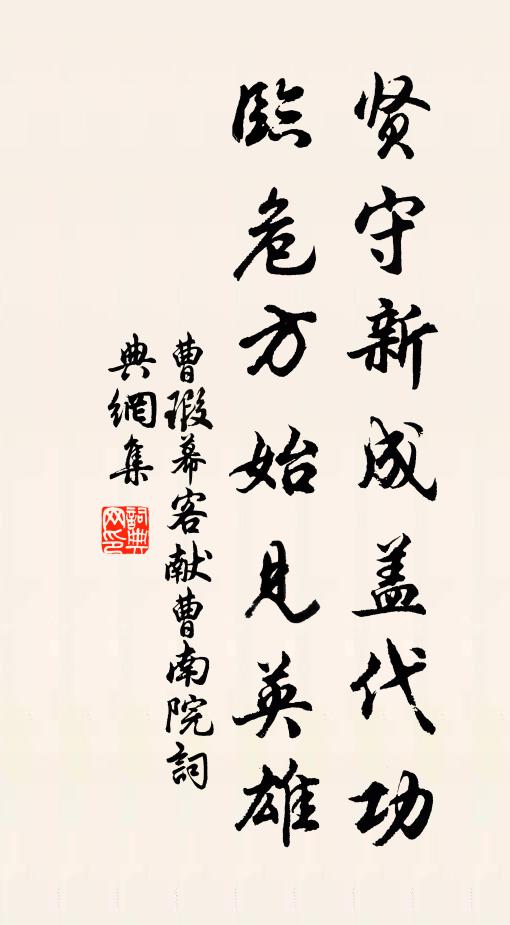 贤守新成盖代功
臨危方始見英雄
曹瑕幕客献曹南院詞
典網集
詞典网印